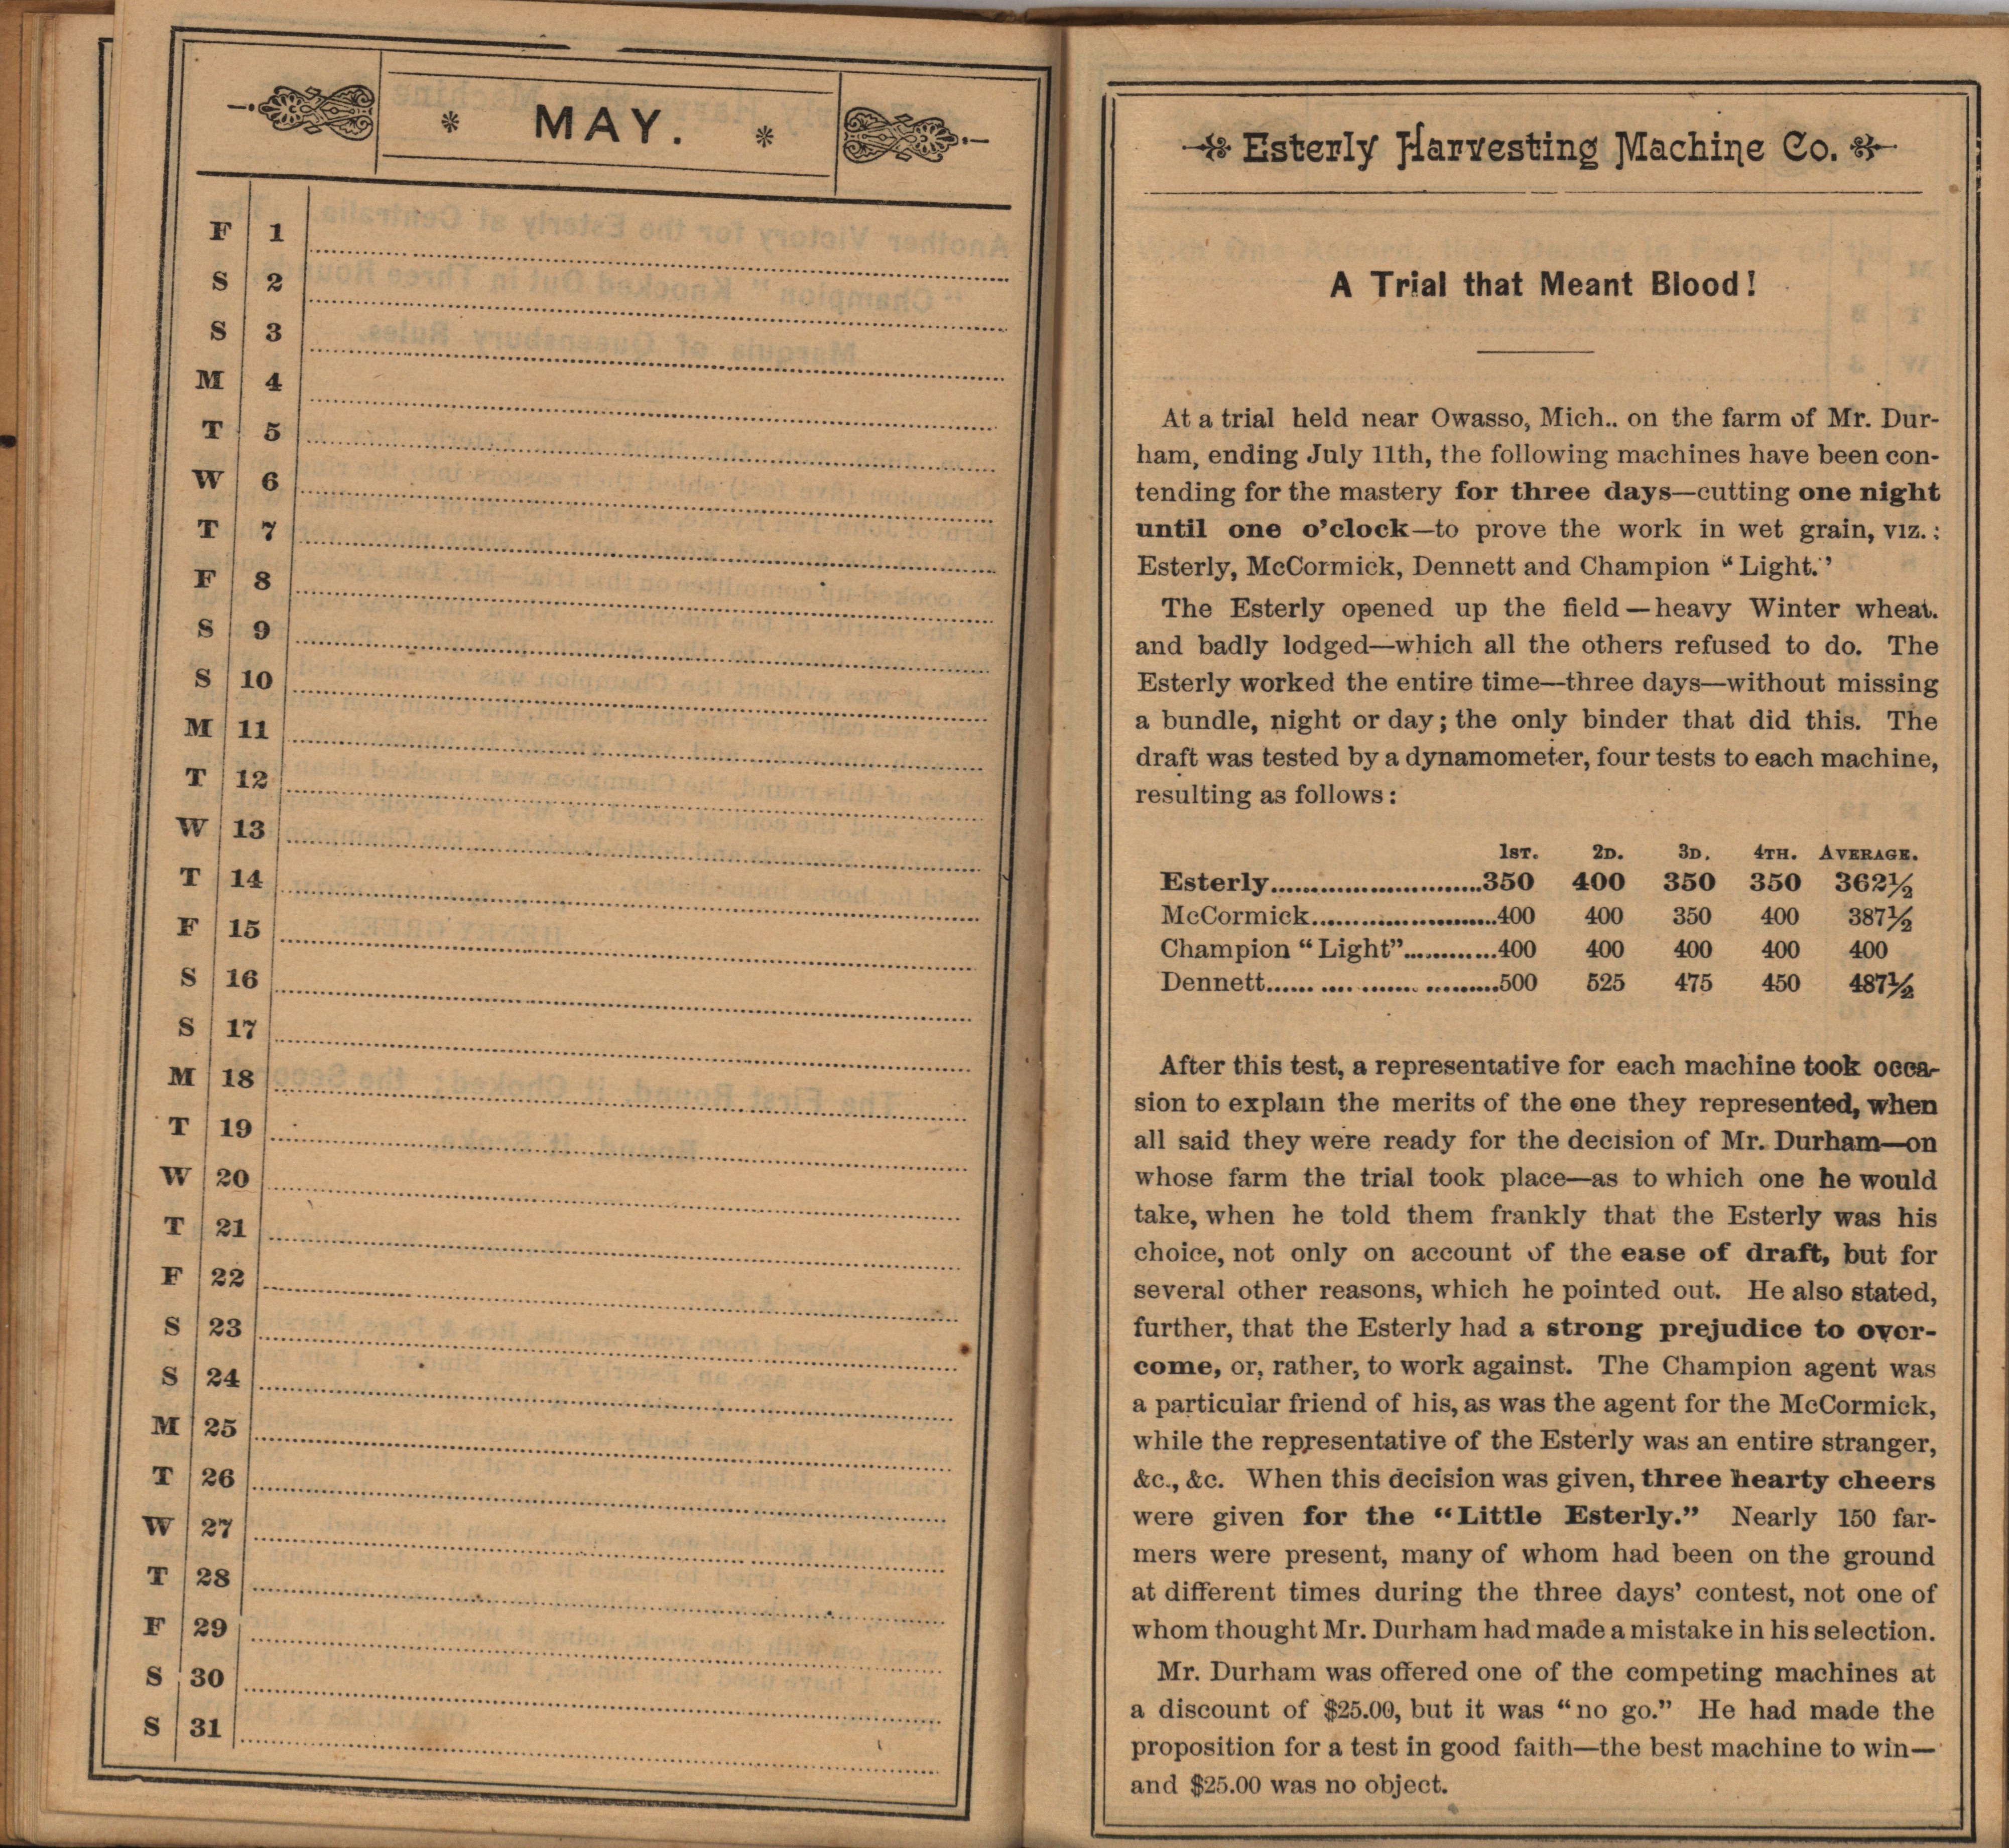 * MAY. *
F 1
S 2
S 3
M 4
T 5
W 6
T 7
F 8
S 9
S 10
M 11
T 12
W 13
T 14
F 15
S 16
S 17
M 18
T 19
W 20
T 21
F 22
S 23
S 24
M 25
T 26
W 27
T 28
F 29
S 30
S 31
Esterly Harvesting Machine Co.
A Trial that Meant Blood!
At a trial held near Owasso, Mich.. on the farm of Mr. Dur-
ham, ending July 11th, the following machines have been con-
tending for the mastery for three days—cutting one night
until one o'clock—to prove the work in wet grain, viz.:
Esterly, McCormick, Dennett and Champion "Light."
The Esterly opened up the field—heavy Winter wheat.
and badly lodged—which all the others refused to do. The
Esterly worked the entire time—three days—without missing
a bundle, night or day; the only binder that did this. The
draft was tested by a dynamometer, four tests to each machine,
resulting as follows:
1ST. 2D. 3D. 4TH. AVERAGE.
Esterly..........................350 400 350 350 362½
McCormick.......................400 400 350 400 387½
Champion "Light"............400 400 400 400 400
Dennett...... .... ....... .........500 525 475 450 487½
After this test, a representative for each machine took occa-
sion to explain the merits of the one they represented, when
all said they were ready for the decision of Mr. Durham—on
whose farm the trial took place—as to which one he would
take, when he told them frankly that the Esterly was his
choice, not only on account of the ease of draft, but for
several other reasons, which he pointed out. He also stated,
further, that the Esterly had a strong prejudice to over-
come, or, rather, to work against. The Champion agent was
a particular friend of his, as was the agent for the McCormick,
while the representative of the Esterly was an entire stranger,
&c., &c. When this decision was given, three hearty cheers
were given for the "Little Esterly." Nearly 150 far-
mers were present, many of whom had been on the ground
at different times during the three days' contest, not one of
whom thought Mr. Durham had made a mistake in his selection.
Mr. Durham was offered one of the competing machines at
a discount of $25.00, but it was "no go." He had made the
proposition for a test in good faith—the best machine to win—
and $25.00 was no object.